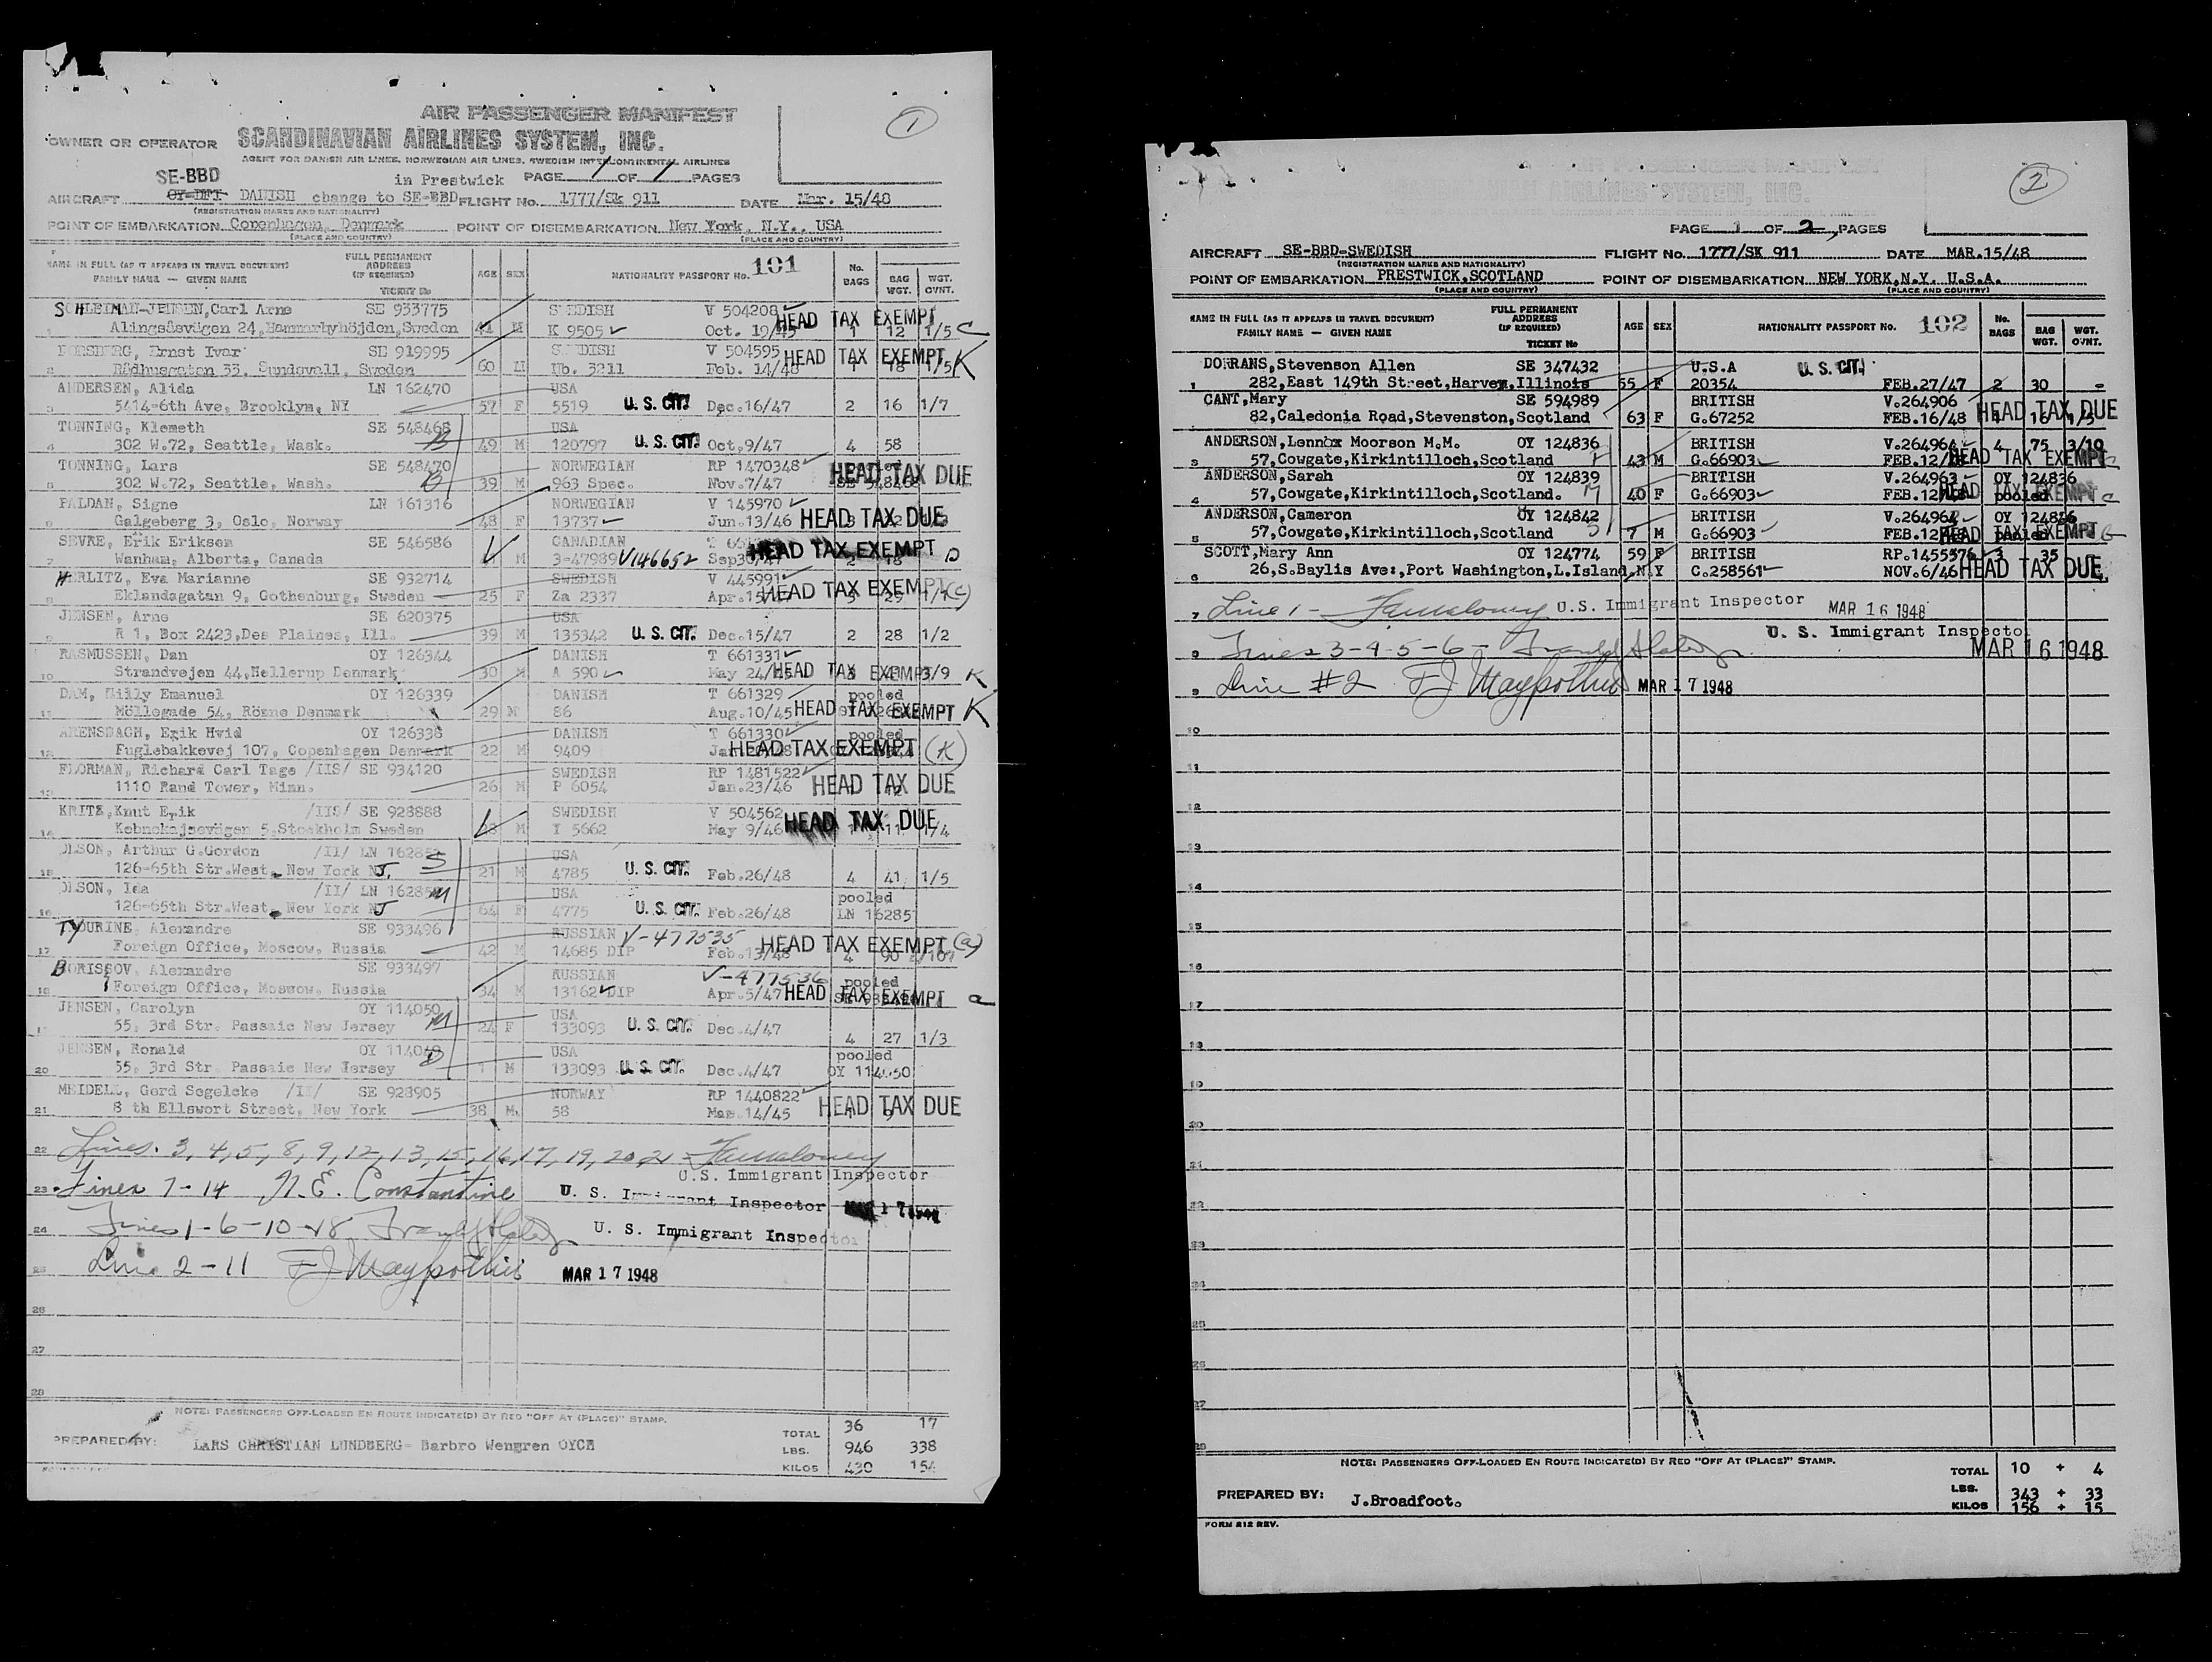 1
AIR PASSENGER MANIFEST
OWNER OR OPERATOR SCANDINAVIAN AIRLINES SYSTEM, INC.
AGENT FOR DANISH AIR LINES, NORWEGIAN AIR LINES, SWEDISH INTERCONTINENTAL AIRLINES
SE-BBD in Prestwick PAGE 1 OF 1 PAGES
AIRCRAFT DANISH change to SE-BBD FLIGHT No. 1777/Sk 911 DATE Mar. 15/48
(REGISTRATION MARKS AND NATIONALITY)
POINT OF EMBARKATION Copenhagen, Denmark POINT OF DISEMBARKATION New York, N.Y., USA
(PLACE AND COUNTRY) (PLACE AND COUNTRY)
NAME IN FULL (AS IT APPEARS IN TRAVEL DOCUMENT) FULL PERMANENT ADDRESS (IF REQUIRED) AGE SEX NATIONALITY PASSPORT No. 101 No. BAGS BAG WGT. WGT. OVNT.
FAMILY NAME — GIVEN NAME TICKET No
SCHLEIMAN-JENSEN, Carl Arne SE 933775 SWEDISH V 504208 HEAD TAX EXEMPT
1 Alingsåsvägen 24, Hammarbyhöjden, Sweden 41 M K 9505 Oct. 19/45 1 12 1/5 C
FORSBERG, Ernst Ivar SE 919995 SWEDISH V 504595 HEAD TAX EXEMPT K
2 Rådhusgatan 33, Sundsvall, Sweden 60 M Ub. 3211 Feb. 14/48 1 18 1/5
ANDERSEN, Alida LN 162470 USA
3 5414-6th Ave, Brooklyn, NY 57 F 5519 U. S. CIT. Dec.16/47 2 16 1/7
TONNING, Klemeth SE 548468 USA
4 302 W.72, Seattle, Wask. B 49 M 120797 U. S. CIT. Oct.9/47 4 58
TONNING, Lars SE 548470 NORWEGIAN RP 1470348 HEAD TAX DUE
5 302 W.72, Seattle, Wash. B 39 M 963 Spec. Nov.7/47
PALDAN, Signe LN 161316 NORWEGIAN V 145970
6 Galgeberg 3, Oslo, Norway 48 F 13737 Jun.13/46 HEAD TAX DUE
SEVRE, Erik Eriksen SE 546586 CANADIAN HEAD TAX EXEMPT D
7 Wanham, Alberta, Canada M 3-47989 V146652 Sep30/47 2 18
HERLITZ, Eva Marianne SE 932714 SWEDISH V 445991 HEAD TAX EXEMPT (C)
8 Eklandagatan 9, Gothenburg, Sweden 25 F Za 2337
JENSEN, Arne SE 620375 USA
9 R 1, Box 2423, Des Plaines, Ill. 39 M 135342 U. S. CIT. Dec.15/47 2 28 1/2
RASMUSSEN, Dan OY 126344 DANISH T 661331
10 Strandvejen 44, Hellerup Denmark 30 M A 590 May 24/ HEAD TAX EXEMPT 3/9 K
DAM, Willy Emanuel OY 126339 DANISH T 661329 pooled
11 Möllegade 54, Rönne Denmark 29 M 86 Aug.10/45 HEAD TAX EXEMPT K
ARENSBACH, Erik Hvid OY 126338 DANISH T 661330 pooled
12 Fuglebakkevej 107, Copenhagen Denmark 22 M 9409 HEAD TAX EXEMPT (K)
FLORMAN, Richard Carl Tage /IIS/ SE 934120 SWEDISH RP 1481522
13 1110 Rand Tower, Minn. 26 M P 6054 Jan.23/46 HEAD TAX DUE
KRITZ, Knut Erik /IIS/ SE 928888 SWEDISH V 504562
14 Kebnekajsevägen 5, Stockholm Sweden M Y 5662 May 9/46 HEAD TAX DUE 1 11 1/4
OLSON, Arthur G.Gordon /II/ LN 16285 S USA
15 126-65th Str.West, New York NJ. 21 M 4785 U. S. CIT. Feb.26/48 4 41 1/5
OLSON, Ida /II/ LN 16285 M USA pooled
16 126-65th Str.West, New York NJ 64 F 4775 U. S. CIT. Feb.26/48 LN 16285
TYOURINE, Alexandre SE 933496 RUSSIAN V-477535 HEAD TAX EXEMPT (a)
17 Foreign Office, Moscow, Russia 42 M 14685 DIP Feb.13/48 4 90 4/107
BORISSOV, Alexandre SE 933497 RUSSIAN V-477536 pooled
18 Foreign Office, Moscow, Russia 34 M 13162 DIP Apr.5/47 HEAD TAX EXEMPT a
JENSEN, Carolyn OY 114050 USA
19 55, 3rd Str. Passaic New Jersey M 24 F 133093 U. S. CIT. Dec.4/47 4 27 1/3
JENSEN, Ronald OY 114049 USA pooled
20 55, 3rd Str. Passaic New Jersey 1 M 133093 U. S. CIT. Dec.4/47 OY 114050
MEIDELL, Gerd Segelcke /II/ SE 928905 NORWAY RP 1440822
21 8 th Ellswort Street, New York 38 M. 58 Mar.14/45 HEAD TAX DUE 1 9
22 Lines. 3, 4, 5, 8, 9, 12, 13, 15, 16, 17, 19, 20, 21
U.S. Immigrant Inspector
23 Lines 7-14 N.E. Constantine U. S. Immigrant Inspector MAR 17 1948
24 Lines 1-6-10-18 U. S. Immigrant Inspector
25 Line 2-11 MAR 17 1948
26
27
28
NOTE: PASSENGERS OFF-LOADED EN ROUTE INDICATE(D) BY RED "OFF AT (PLACE)" STAMP.
TOTAL 36 17
PREPARED BY: LARS CHRISTIAN LUNDBERG- Barbro Wengren OYCH LBS. 946 338
KILOS 430 154
2
PAGE 1 OF 2, PAGES
AIRCRAFT SE-BBD-SWEDISH FLIGHT No. 1777/SK 911 DATE MAR.15/48
(REGISTRATION MARKS AND NATIONALITY)
POINT OF EMBARKATION PRESTWICK,SCOTLAND POINT OF DISEMBARKATION NEW YORK,N.Y. U.S.A.
(PLACE AND COUNTRY) (PLACE AND COUNTRY)
NAME IN FULL (AS IT APPEARS IN TRAVEL DOCUMENT) FULL PERMANENT ADDRESS (IF REQUIRED) AGE SEX NATIONALITY PASSPORT No. 102 No. BAGS BAG WGT. WGT. OVNT.
FAMILY NAME — GIVEN NAME TICKET No
DORRANS,Stevenson Allen SE 347432 U.S.A U. S. CIT.
1 282,East 149th Street,Harvey,Illinois 55 F 20354 FEB.27/47 2 30 -
CANT,Mary SE 594989 BRITISH V.264906
82,Caledonia Road,Stevenston,Scotland 63 F G.67252 FEB.16/48 HEAD TAX DUE 1 16 1/5
ANDERSON,Lennox Moorson M.M. OY 124836 BRITISH V.264964 4 75 3/10
3 57,Cowgate,Kirkintilloch,Scotland 43 M G.66903 FEB.12/ HEAD TAX EXEMPT C
ANDERSON,Sarah OY 124839 BRITISH V.264963 OY 124836
4 57,Cowgate,Kirkintilloch,Scotland. 40 F G.66903 FEB.12/ HEAD TAX EXEMPT pooled C
ANDERSON,Cameron OY 124842 BRITISH V.264962 OY 124836
5 57,Cowgate,Kirkintilloch,Scotland 7 M G.66903 FEB.12/ HEAD TAX EXEMPT pooled
SCOTT,Mary Ann OY 124774 59 F BRITISH RP.1455576 3 35
6 26,S.Baylis Ave:,Port Washington,L.Island,N.Y C.258561 NOV.6/46 HEAD TAX DUE
7 Line 1 - U.S. Immigrant Inspector MAR 16 1948
U. S. Immigrant Inspector
8 Lines 3-4-5-6- MAR 16 1948
9 Line #2 MAR 17 1948
10
11
12
13
14
15
16
17
18
19
20
21
22
23
24
25
26
27
28
NOTE: PASSENGERS OFF-LOADED EN ROUTE INDICATE(D) BY RED "OFF AT (PLACE)" STAMP.
TOTAL 10 + 4
PREPARED BY: J.Broadfoot. LBS. 343 + 33
KILOS 156 + 15
FORM 212 REV.